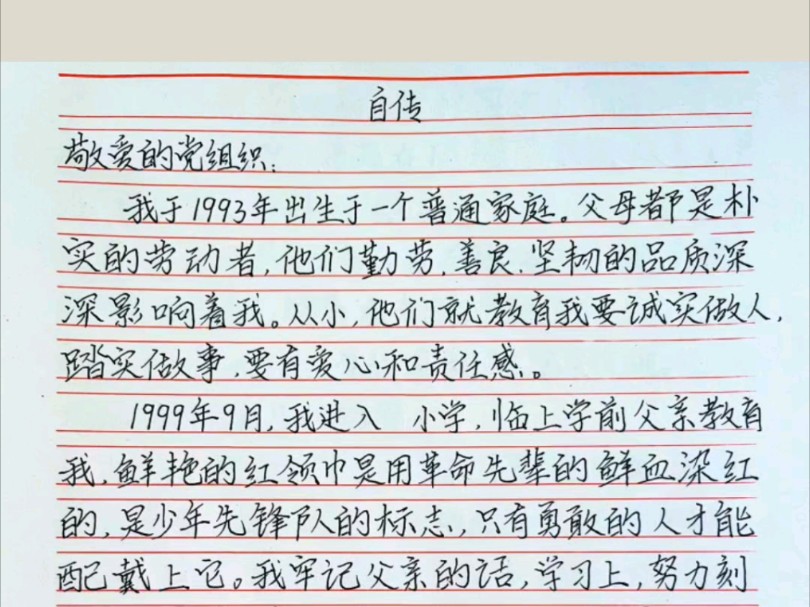 自传
敬爱的党组织:
我于1993年出生于一个普通家庭。父母都是朴
实的劳动者,他们勤劳,善良.坚韧的品质深
深影响着我。从小,他们就教育我要诚实做人,
踏实做事,要有爱心和责任感。
1999年9月,我进入 小学,临上学前父亲教育
我,鲜艳的红领巾是用革命先辈的鲜血染红
的,是少年先锋队的标志,只有勇敢的人才能
配戴上它。我牢记父亲的话,学习上,努力刻